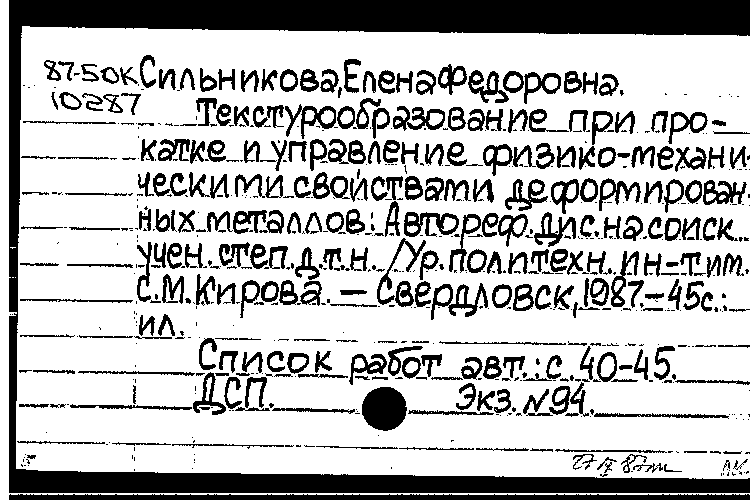 87-50К Сильникова, Елена Федоровна.
10287
Текстурообразование при про-
катке и управление физико-механи-
ческими свойствами деформирован-
ных металлов: Автореф. дис. на соиск.
учен. степ. д.т.н. / Ур. политехн. ин-т им.
С.М. Кирова. — Свердловск, 1987. — 45с.:
ил.
Список работ авт.: с. 40-45.
ДСП. Экз. N94.